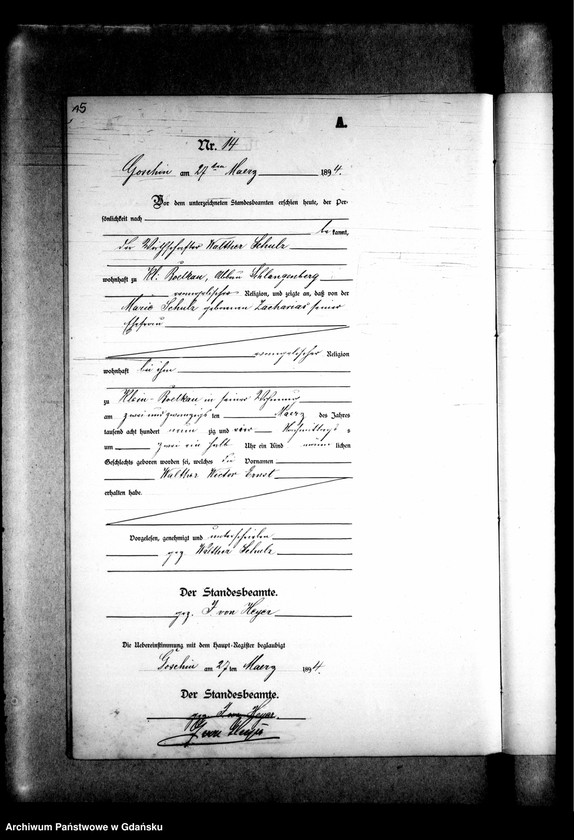 15
A.
Nr. 14
Goschin am 27ten Maerz 1894.
Vor dem unterzeichneten Standesbeamten erschien heute, der Per-
sönlichkeit nach
bekannt,
der Wirthschafter Walther Schulz
wohnhaft zu Kl. Boelkau, Abbau Schlangenberg
evangelischer Religion, und zeigte an, daß von der
Marie Schulz geborenen Zacharias seiner
Ehefrau
evangelischer Religion
wohnhaft bei ihm
zu Klein-Boelkau in seiner Wohnung
am zwei und zwanzigsten Maerz des Jahres
tausend acht hundert neunzig und vier Nachmittags
um zwei ein halb Uhr ein Kind männlichen
Geschlechts geboren worden sei, welches die Vornamen
Walther Victor Ernst
erhalten habe.
Vorgelesen, genehmigt und unterschrieben
gez. Walther Schulz
Der Standesbeamte.
gez. J von Heyer
Die Uebereinstimmung mit dem Haupt-Register beglaubigt
Goschin am 27ten Maerz 1894.
Der Standesbeamte.
gez. J von Heyer.
J von Heyer
Archiwum Państwowe w Gdańsku